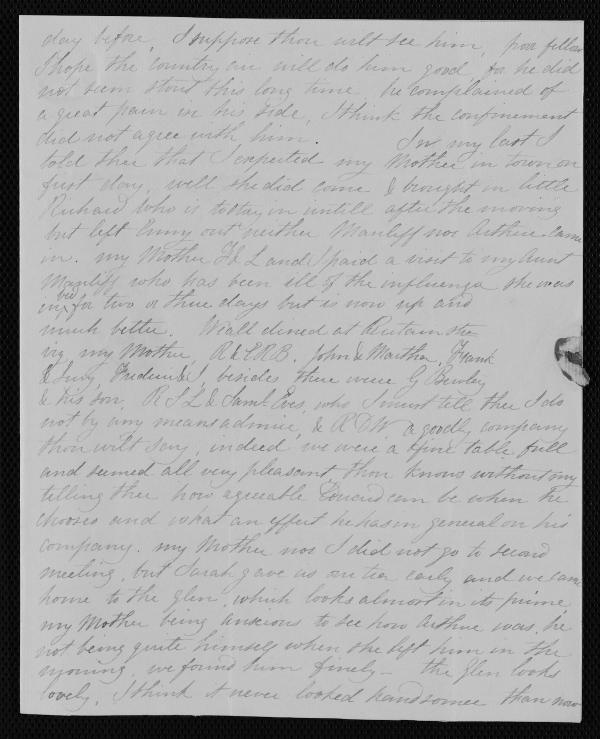 day before, I suppose thou wilt see him, poor fellow
I hope the country air will do him good, for he did
not seem stout this long time he complained of
a great pain in his side, I think the confinement
did not agree with him. In my last I
told thee that I expected my Mother in town on
first day, well she did come & brought in little
Richard who is to stay in untill after the moving
but left Lucy out neither Manliff nor Arthur came
in. my Mother and I paid a visit to my Aunt
Manliff who has been ill of the influenza she was
in bed for two or three days but is now up and
much better. We all dined at Rutain
viz my Mother, R & ERB. John & Martha, Frank
& Lucy, Frederic & I, besides there were G Bewley
& his son, R S L & Saml. Eves, who I must tell thee I do
not by any means admire, & R D W a goodly company
thou wilt say, indeed we were a fine table full
and seemed all very pleasant thou knows without my
telling thee how agreeable can be when he
chooses and what an effect he has in general on his
company. my Mother nor I did not go to second
meeting, but Sarah gave us our tea early and we came
home to the glen, which looks almost in its prime
my Mother being anxious to see how Arthur was, he
not being quite himself when she left him in the
morning, we found him finely – the Glen looks
lovely, I think it never looked handsomer than now